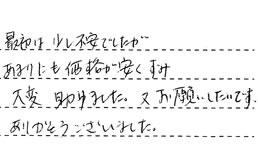 最初は少し不安でしたが
あまりにも価格が安くすみ
大変助けました。又お願いしたいです。
ありがとうございました。